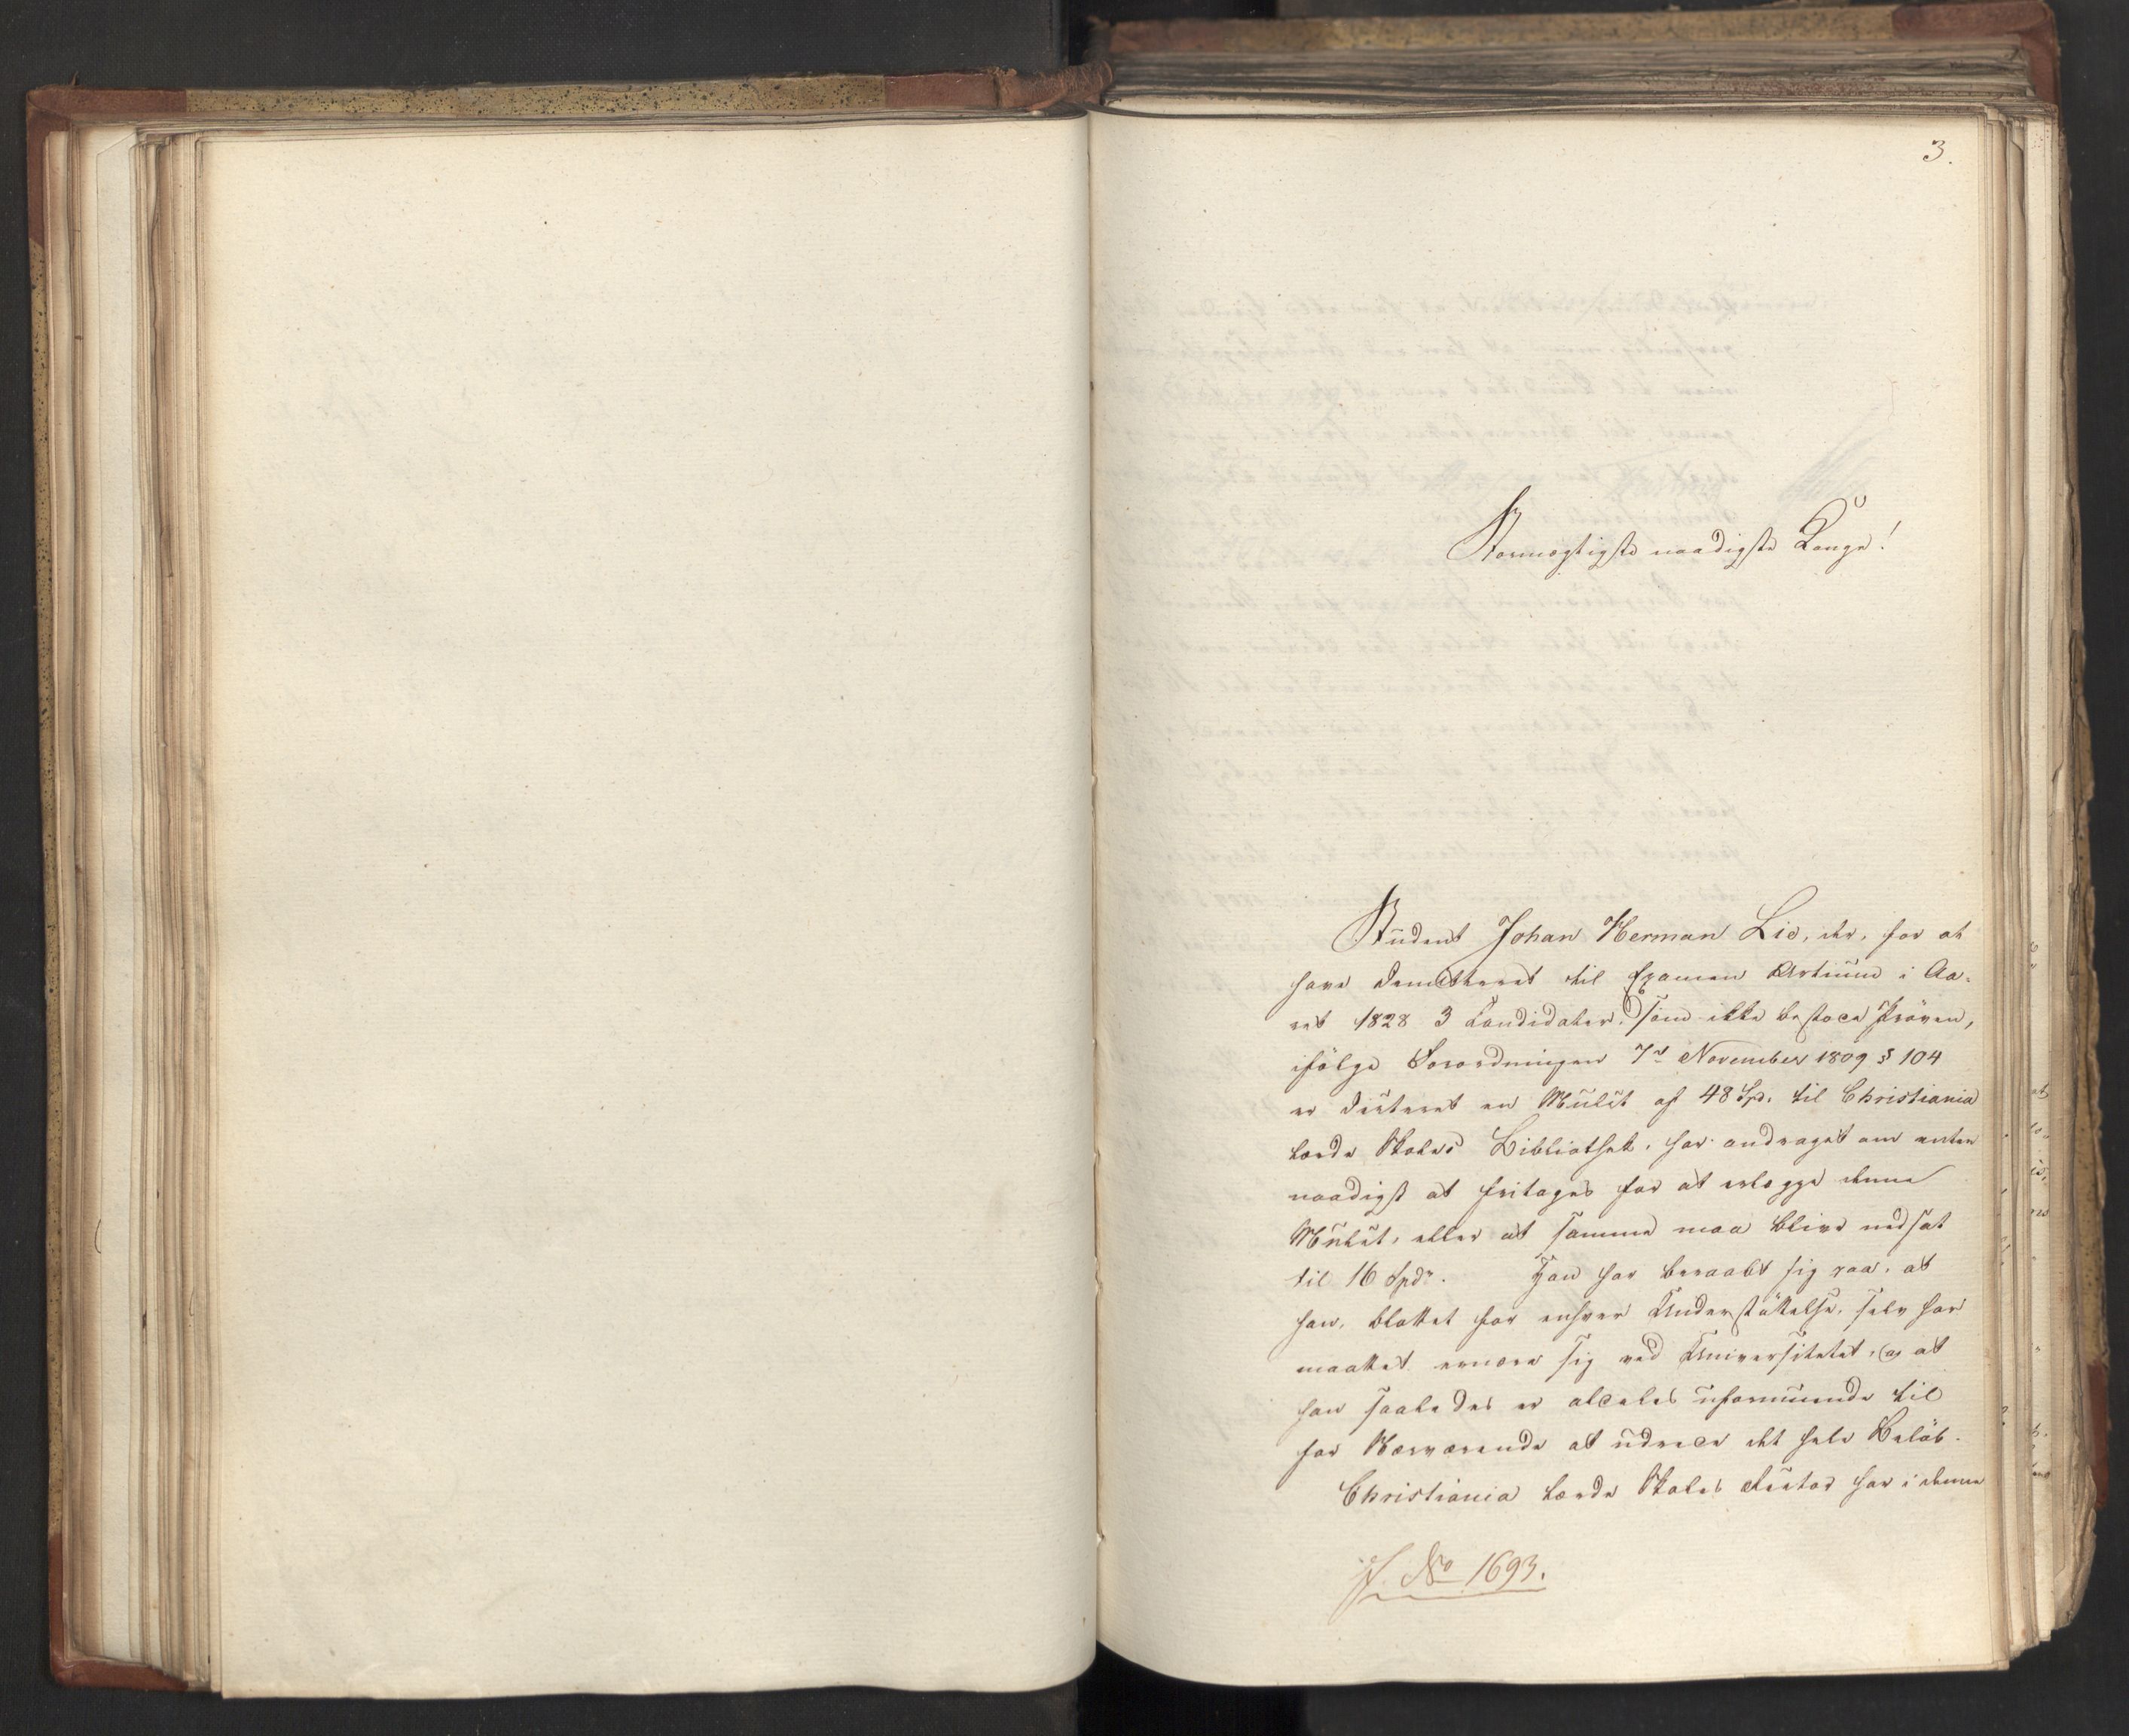 3.
Stormægtigste naadigste Konge!
Student Johan Herman Lie, der, for at
have demitteret til Examen Artium i Aa-
ret 1828 3 Candidater, som ikke bestode Prøven,
ifølge Forordningen 7de November 1809 § 104
er dicteret en Mulct af 48 Spd. til Christiania
lærde Skoles Bibliothek, har andraget om enten
naadigst at fritages for at erlægge denne
Mulct, eller at samme maa blive nedsat
til 16 Spdr. Han har beraabt sig paa, at
han, blottet for enhver Understøttelse, selv har
maattet ernære sig ved Universitetet, og at
han saaledes er aldeles uformuende til
for Nærværende at udrede det hele Beløb.
Christiania lærde Skoles Rector har i denne
No 1693.